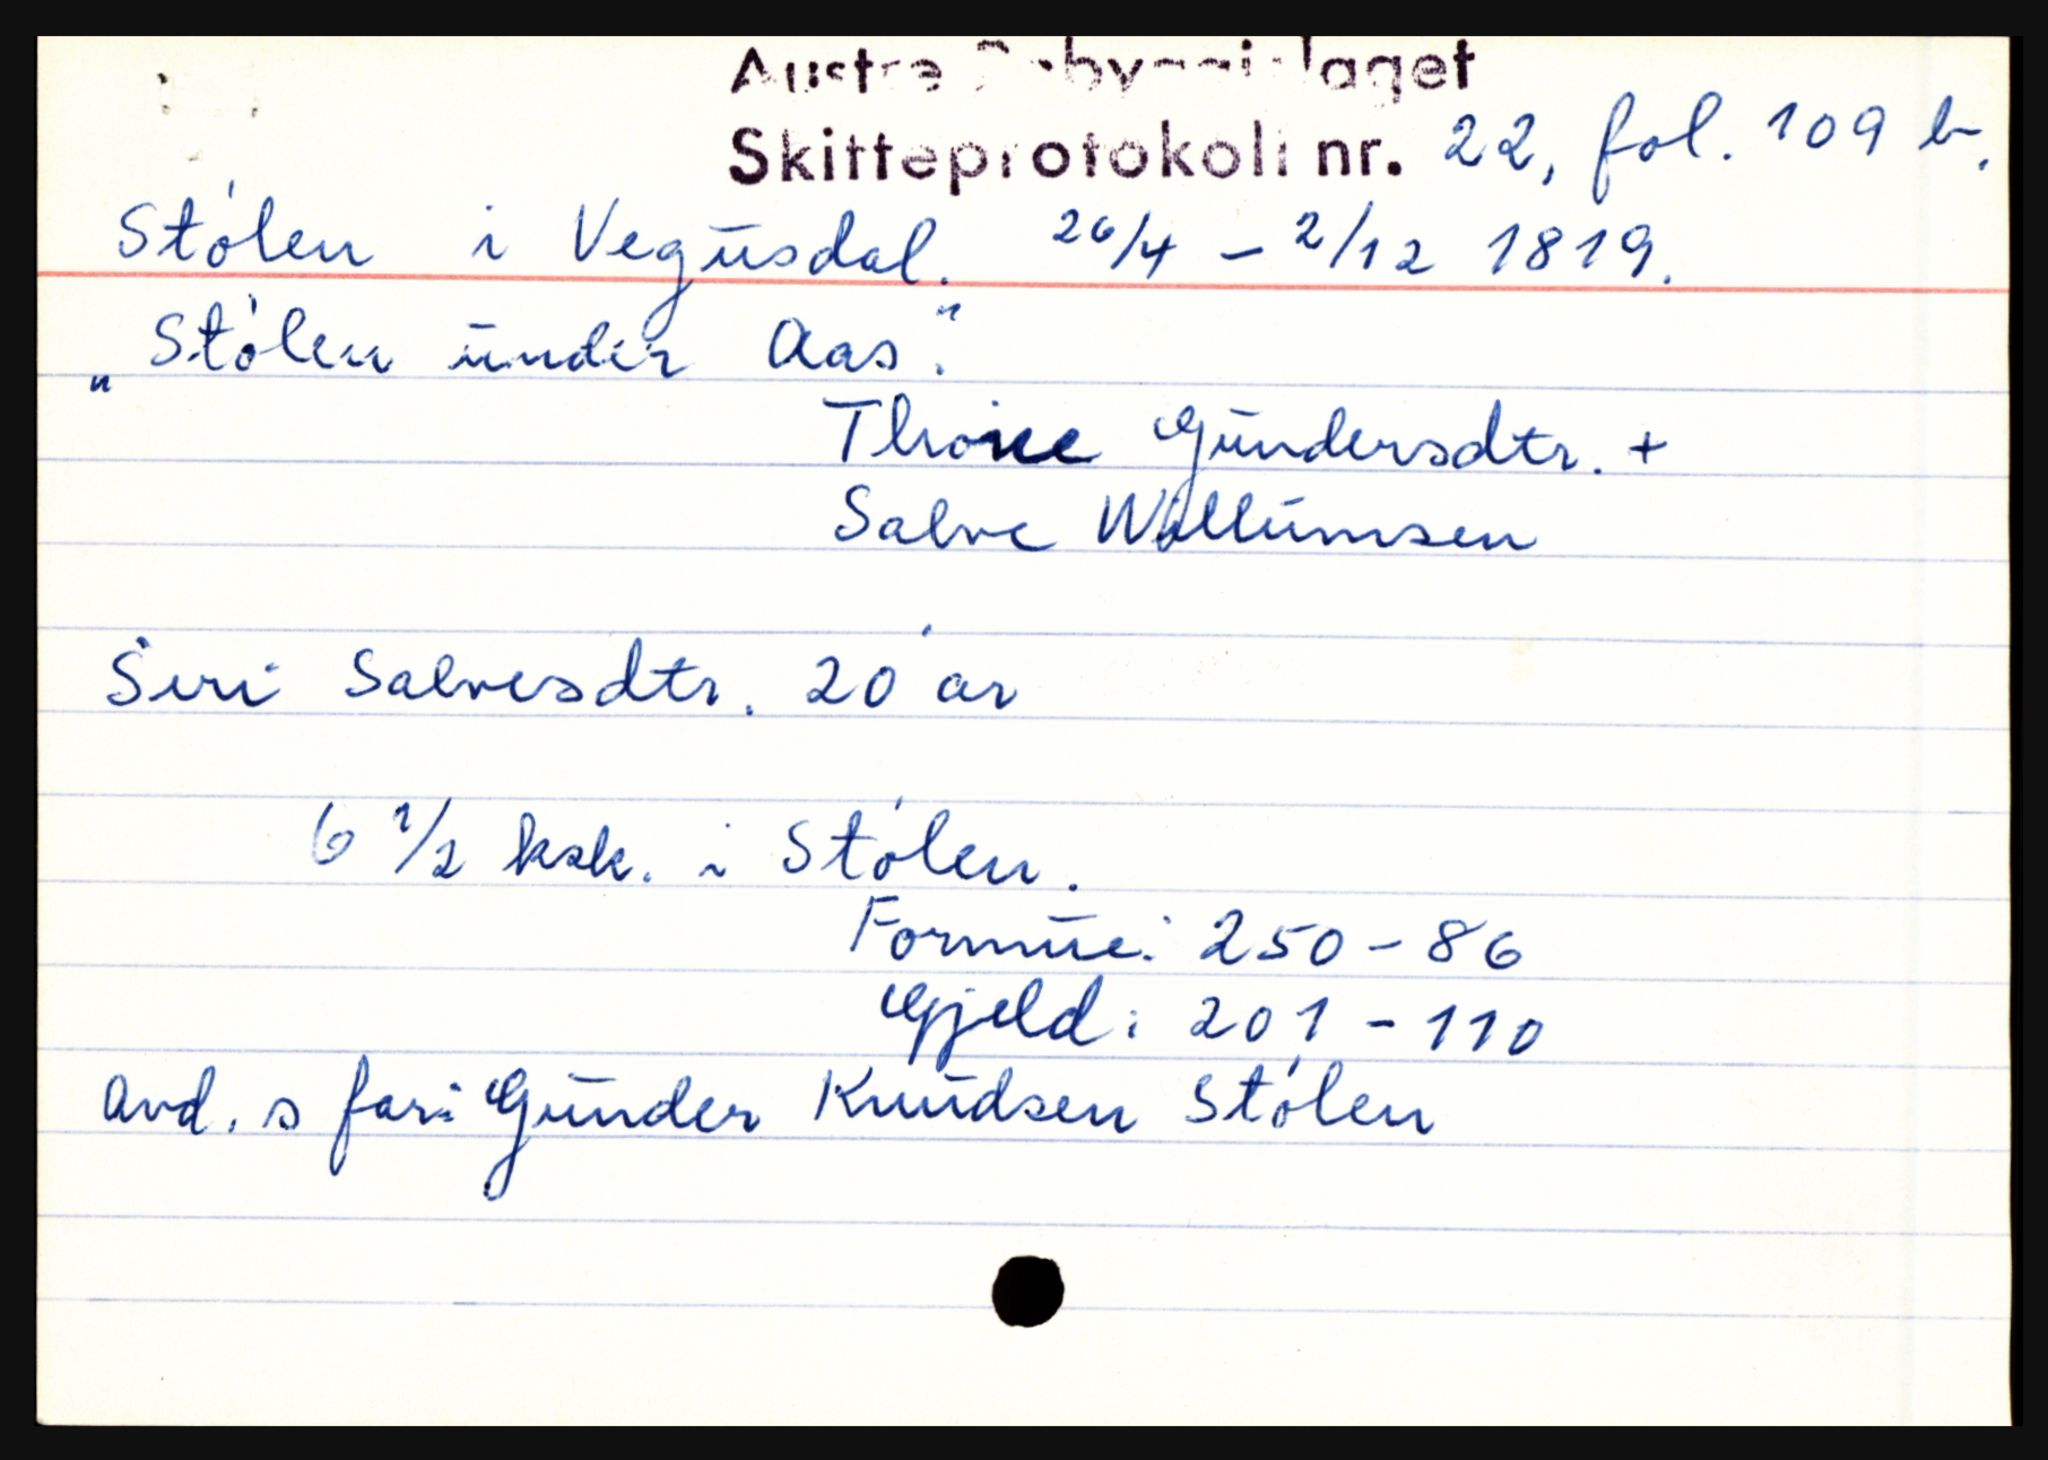 Austre laget
Skifteprotokoll nr. 22, fol. 109 b.
Stølen i Vegusdal. 26/4 - 2/12 1819.
"Stølen under Aas".
Throne Gundersdtr. +
Salve Wollumsen
Siri Salvesdtr. 20 år
6 1/2 ksk. i Stølen.
Formue: 250-86
Gjeld: 201-110
Avd. s far: Gunder Knudsen Stølen